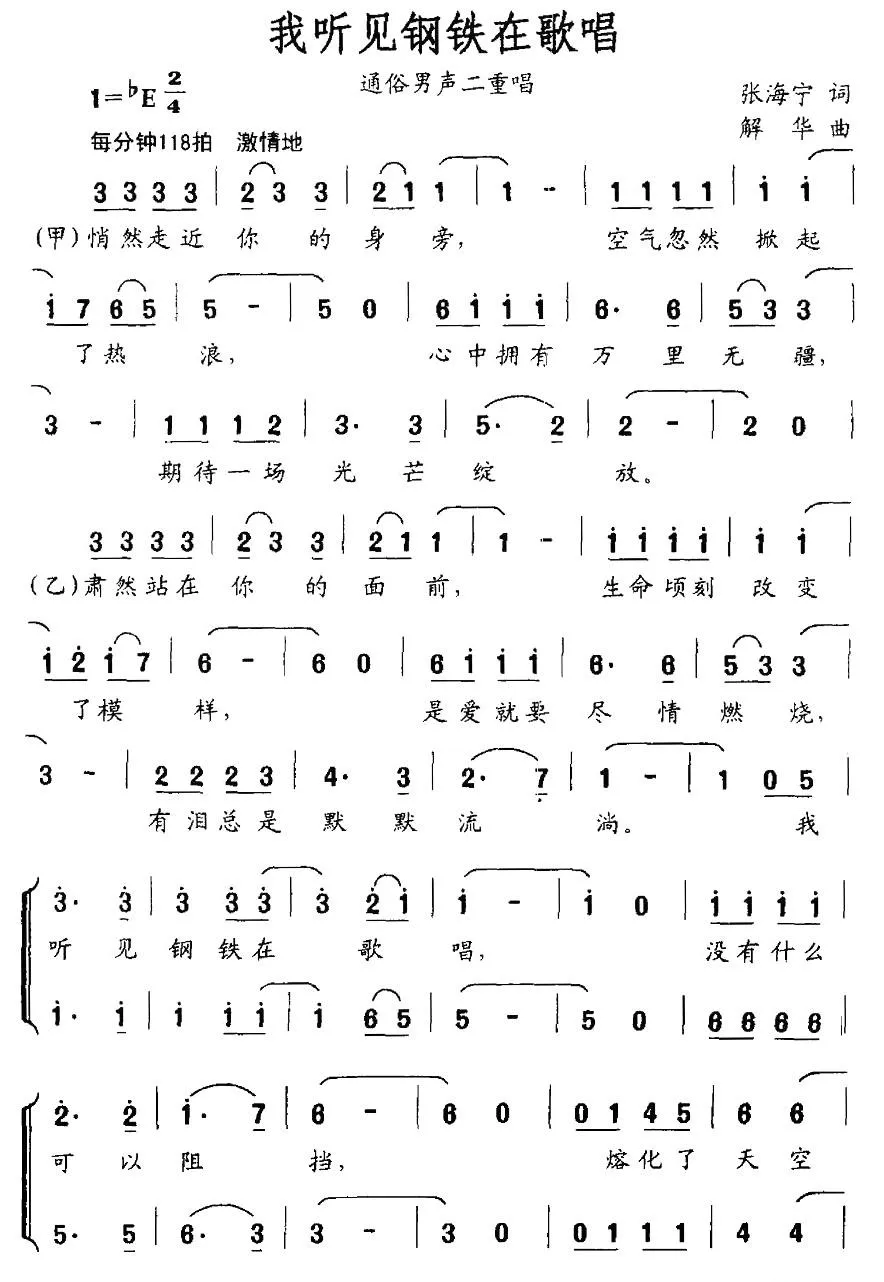 我听见钢铁在歌唱
通俗男声二重唱
1=♭E 2/4
张海宁 词
解华 曲
每分钟118拍 激情地
3 3 3 3 | 2 3 3 | 2 1 1 | 1 - | 1 1 1 1 | i i |
(甲)悄然走近 你 的 身 旁, 空气忽然 掀起
i 7 6 5 | 5 - | 5 0 | 6 i i i | 6· 6 | 5 3 3 |
了热 浪, 心中拥有 万 里 无 疆,
3 - | 1 1 1 2 | 3· 3 | 5· 2 | 2 - | 2 0 |
期待一场 光 芒 绽 放。
3 3 3 3 | 2 3 3 | 2 1 1 | 1 - | i i i i | i i |
(乙)肃然站在 你 的 面 前, 生命顷刻 改变
i 2 i 7 | 6 - | 6 0 | 6 i i i | 6· 6 | 5 3 3 |
了模 样, 是爱就要 尽 情 燃 烧,
3 - | 2 2 2 3 | 4· 3 | 2· 7 | 1 - | 1 0 5 |
有泪总是 默 默 流 淌。 我
3· 3 | 3 3 3 | 3 2 i | i - | i 0 | i i i i |
听 见 钢 铁在 歌 唱, 没有什么
i· i | i i i | i 6 5 | 5 - | 5 0 | 6 6 6 6 ‖
2· 2 | i· 7 | 6 - | 6 0 | 0 1 4 5 | 6 6 |
可 以 阻 挡, 熔化了 天空
5· 5 | 6· 3 | 3 - | 3 0 | 0 1 1 1 | 4 4 |